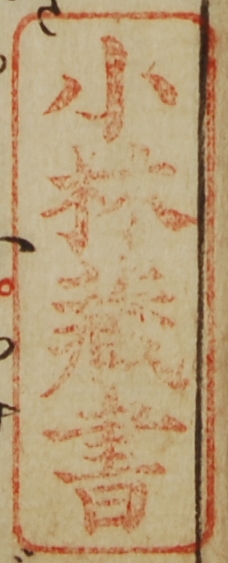 小林藏書